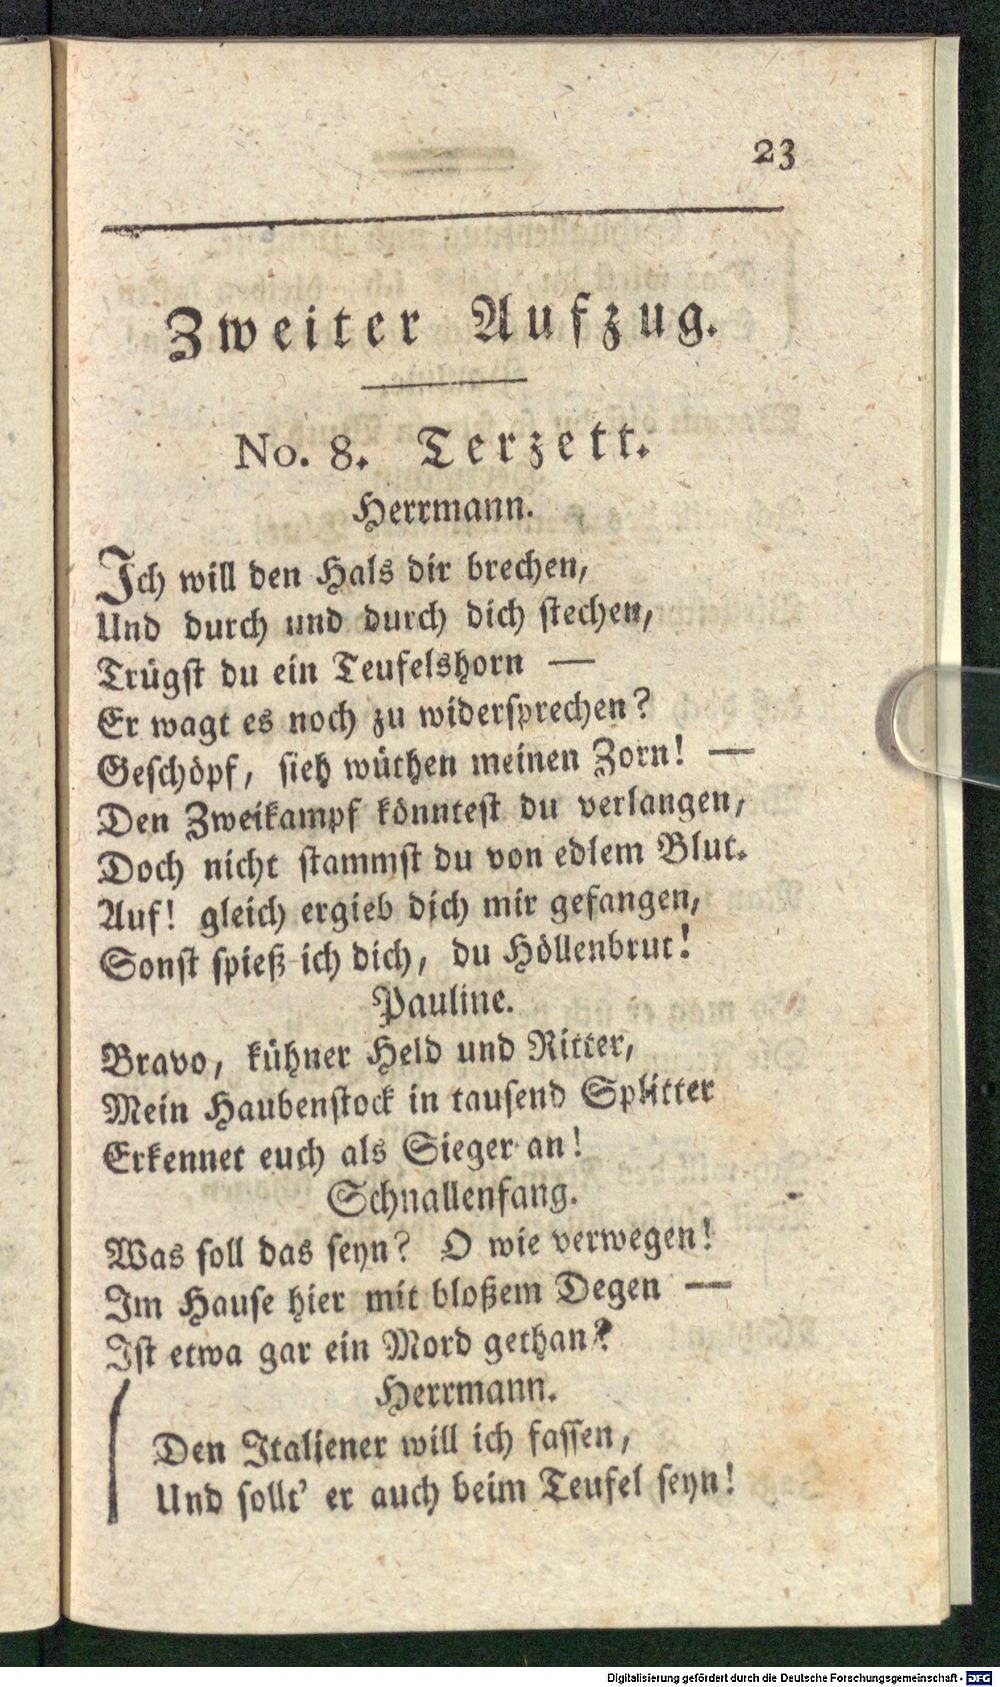 23
Zweiter Aufzug.
No. 8. Terzett.
Herrmann.
Ich will den Hals dir brechen,
Und durch und durch dich stechen,
Trügst du ein Teufelshorn —
Er wagt es noch zu widersprechen?
Geschöpf, sieh wüthen meinen Zorn! —
Den Zweikampf könntest du verlangen,
Doch nicht stammst du von edlem Blut.
Auf! gleich ergieb dich mir gefangen,
Sonst spieß ich dich, du Höllenbrut!
Pauline.
Bravo, kühner Held und Ritter,
Mein Haubenstock in tausend Splitter
Erkennet euch als Sieger an!
Schnallenfang.
Was soll das seyn? O wie verwegen!
Im Hause hier mit bloßem Degen —
Ist etwa gar ein Mord gethan?
Herrmann.
Den Italiener will ich fassen,
Und sollt' er auch beim Teufel seyn!
Digitalisierung gefördert durch die Deutsche Forschungsgemeinschaft - DFG